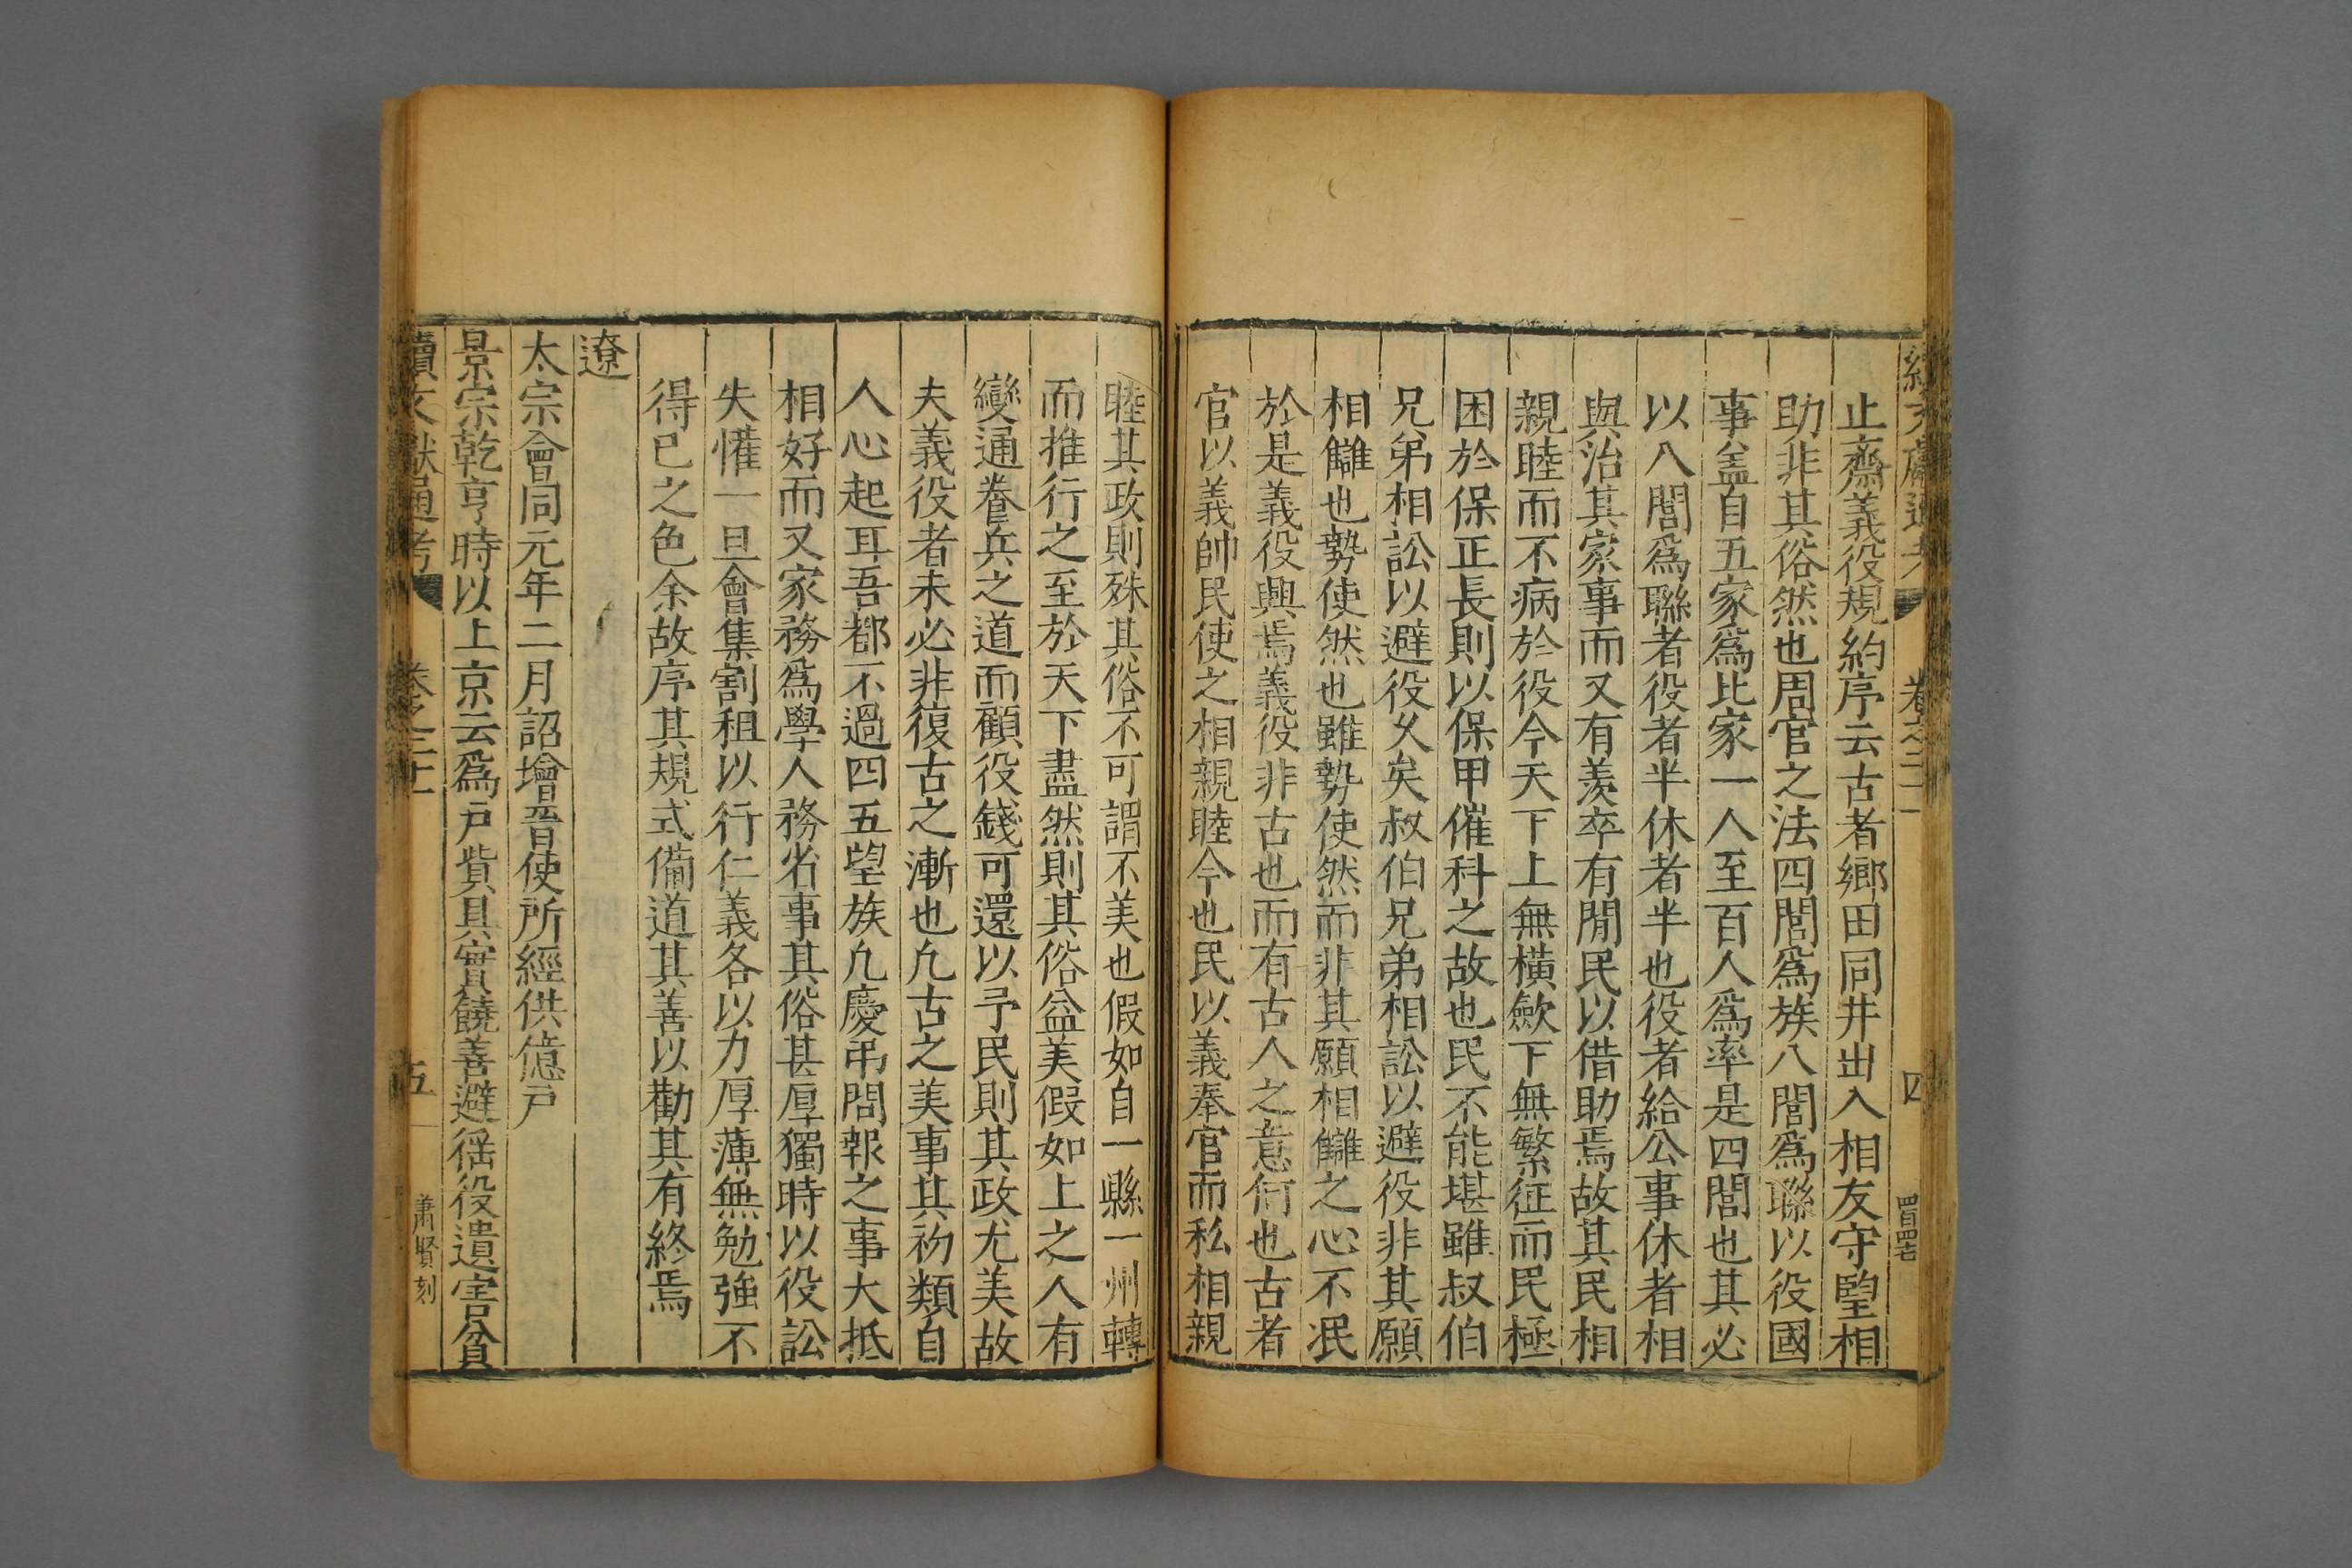 止齋義役規約序云古者鄉田同井出入相友守朢相
助非其俗然也周官之法四閭爲族八閭爲聯以役國
事盖自五家爲比家一人至百人爲率是四閭也其必
以八閭爲聯者役者半休者半也役者給公事休者相
與治其家事而又有羡卒有閒民以借助焉故其民相
親睦而不病於役今天下上無橫歛下無繁征而民極
困於保正長則以保甲催科之故也民不能堪雖叔伯
兄弟相訟以避役乆矣叔伯兄弟相訟以避役非其願
相讎也勢使然也雖勢使然而非其願相讎之心不泯
於是義役興焉義役非古也而有古人之意何也古者
官以義帥民使之相親睦今也民以義奉官而私相親
睦其政則殊其俗不可謂不美也假如自一縣一州轉
而推行之至於天下盡然則其俗益美假如上之人有
變通養兵之道而顧役錢可還以予民則其政尤美故
夫義役者未必非復古之漸也凢古之美事其初類自
人心起耳吾都不過四五望族凢慶弔問報之事大抵
相好而又家務爲學人務省事其俗甚厚獨時以役訟
失懽一旦會集割租以行仁義各以力厚薄無勉強不
得已之色余故序其規式備道其善以勸其有終焉
遼
太宗會同元年二月詔增晉使所經供億戶
景宗乾亨時以上京云爲戶貲具實饒善避徭役遺害貧
續文獻通考
五
蕭賢刻